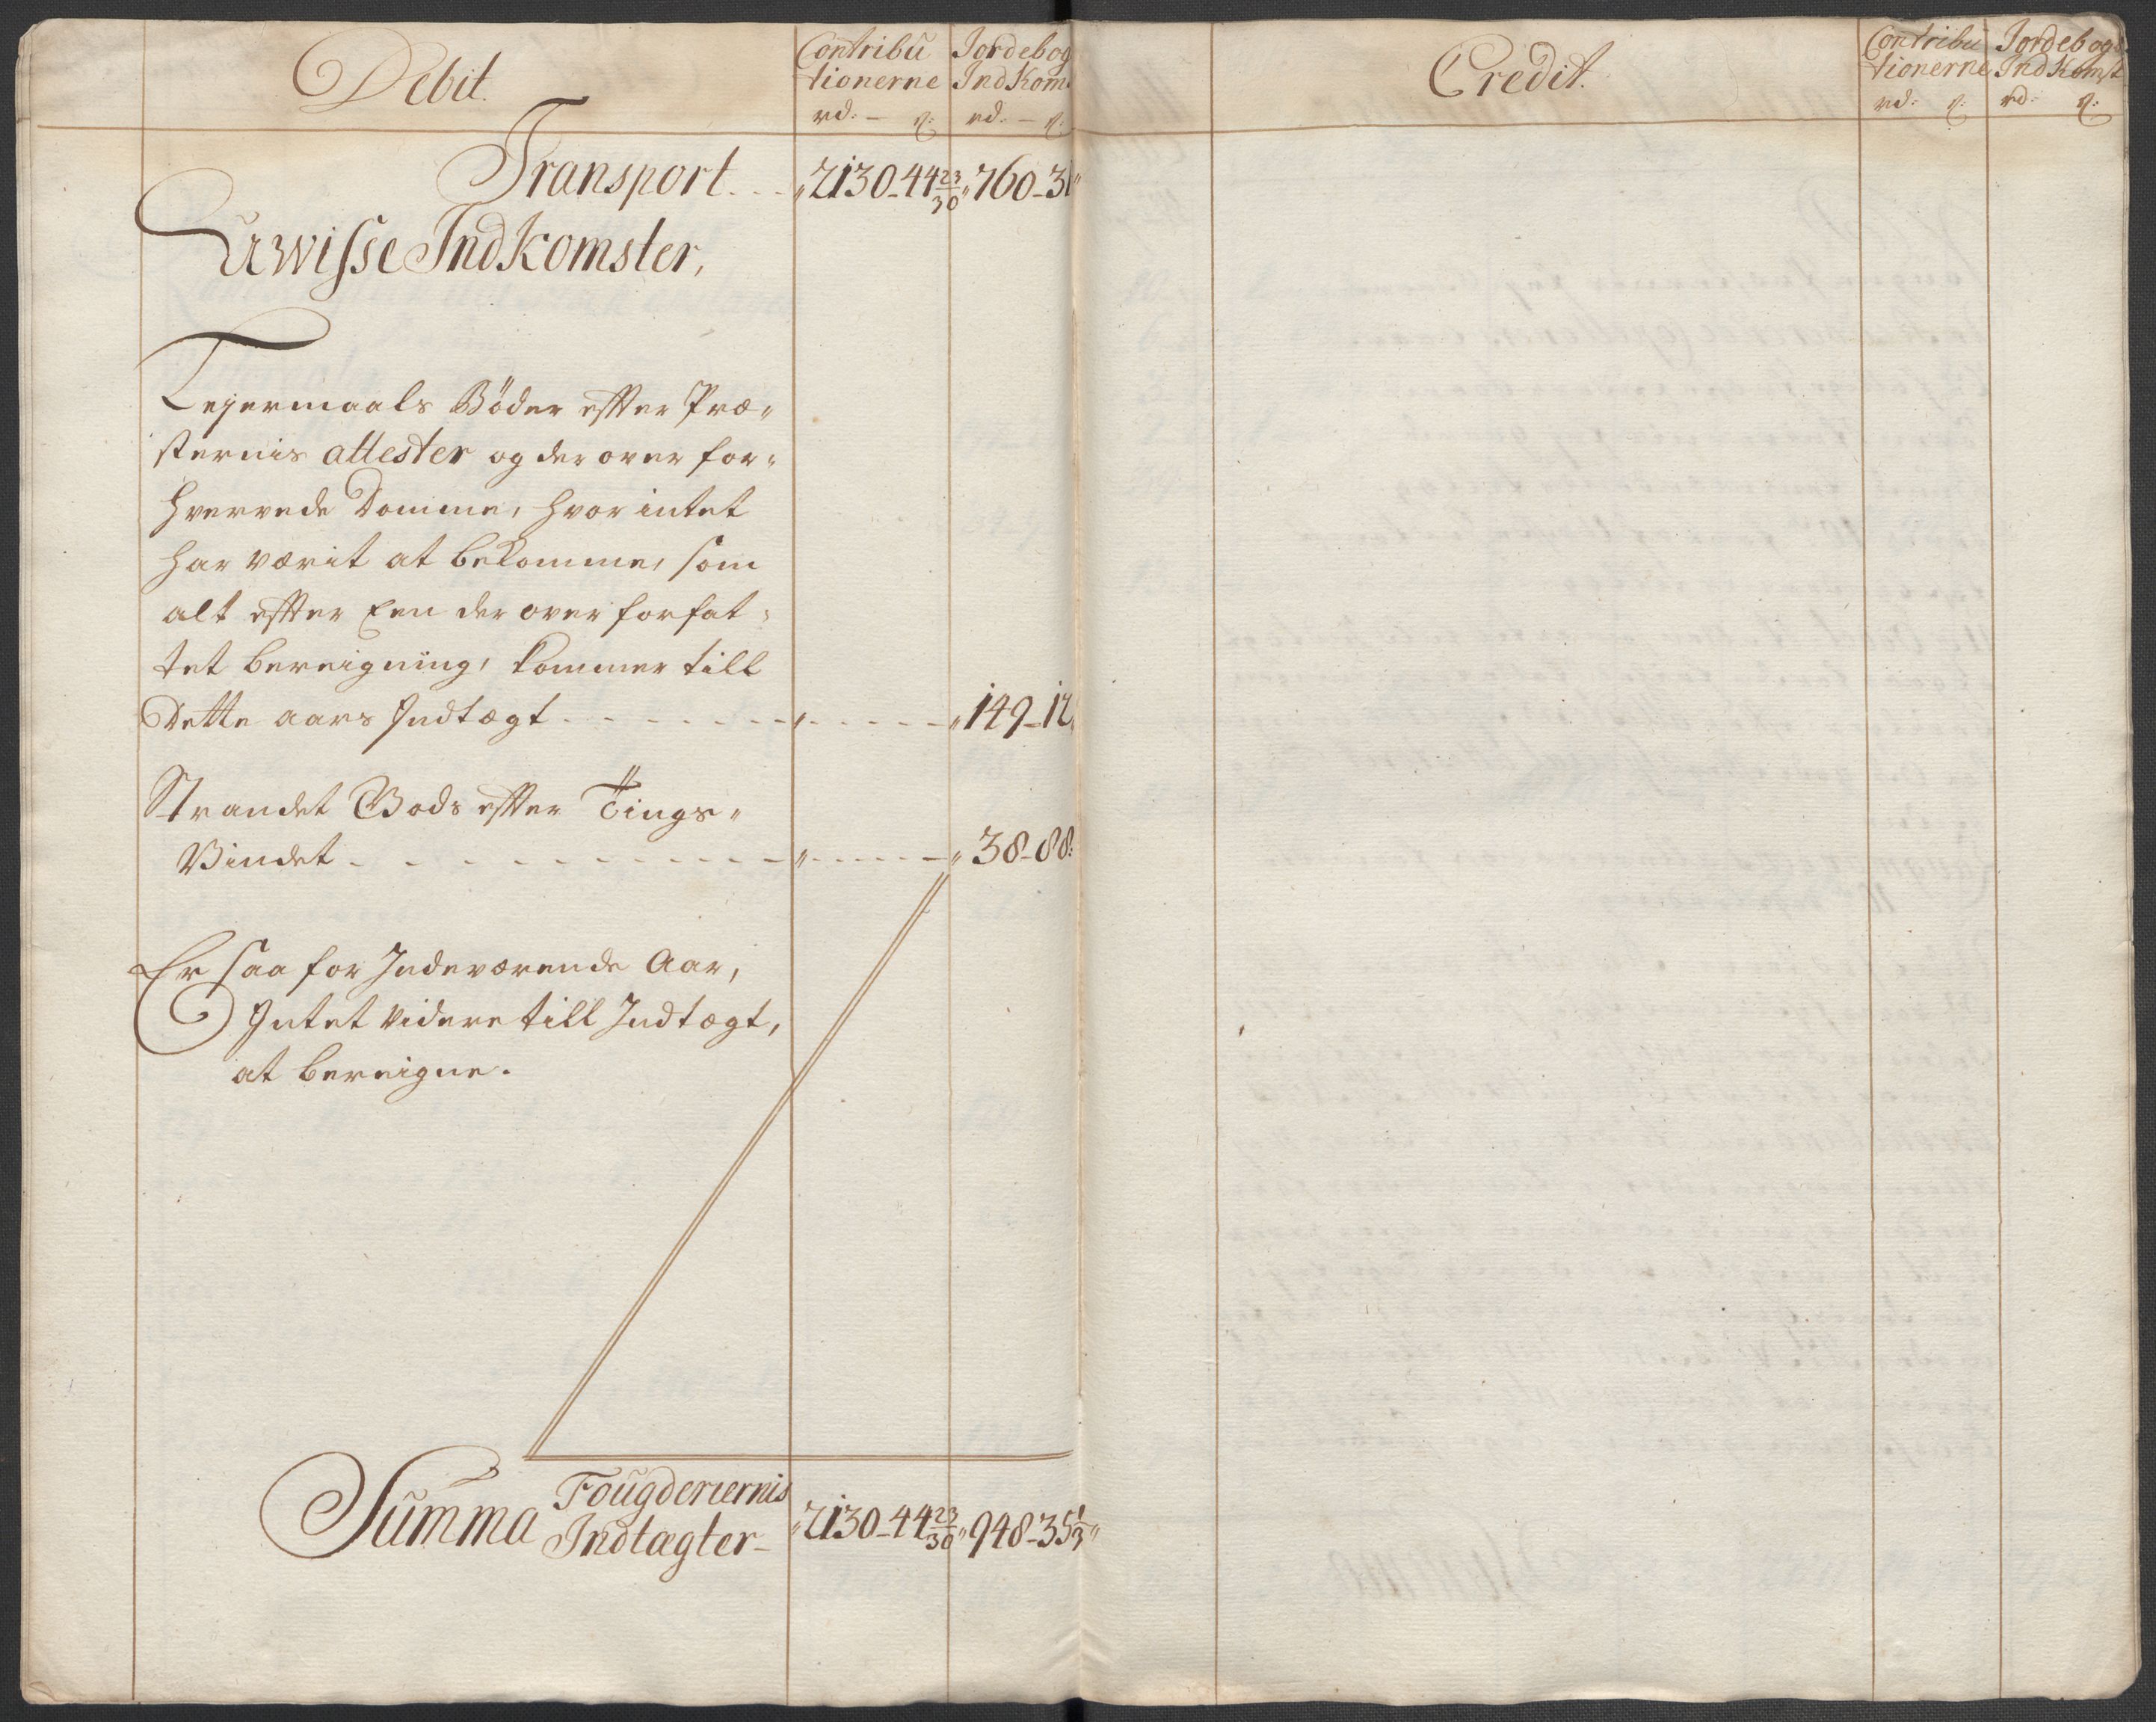 Debit.
Contribu
tionerne
rd: - ß:
Jordebog
Ind Kom
rd. - ß:
Transport - - - 2130-44 23/30 760-31
Uwisse Ind Komster,
Lejermaals Böder efter Præ-
sternis attester og der over for-
hvervede Domme, hvor intet
harværit at bekomme, som
alt efter Een der over forfat-
tet bereigning, kommer till
Dette aars Indtægt - - - - - - - 149-12
Strandet Gods efter Tings-
Vindet - - - - - - - - - 38-88
Er saa for Indeværende Aar,
Intet videre till Indtægt,
at bereigne.
Summa Fougderiernis
Indtægter - 2130-44 23/30 948-35 1/3
Credit.
Contribu
tionerne
rd: ß:
Jordebogs
Ind Komst
rd: ß: